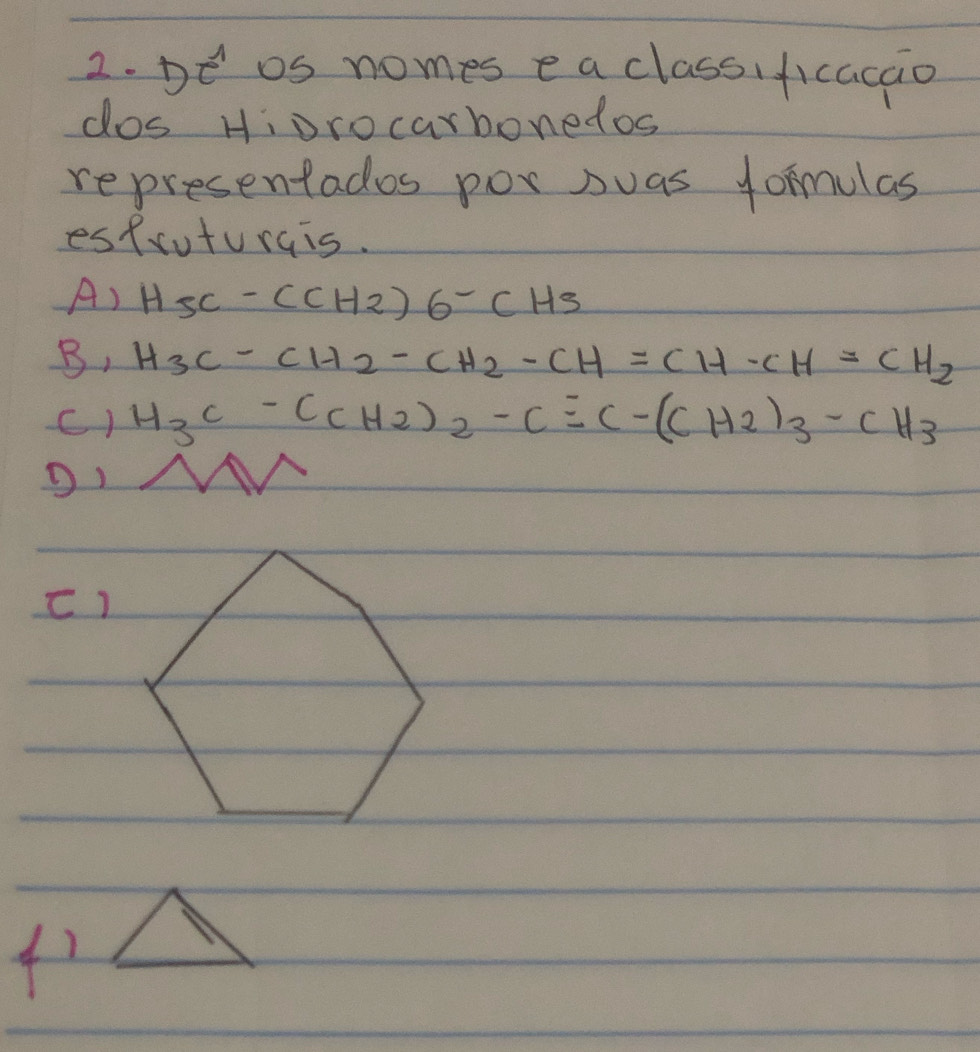 2. Dê os nomes e a classificacção
dos Hidrocarbonetos
representados por suas fórmulas
estruturais.
A) H3C - (CH2)6 - CH3
B) H3C - CH2 - CH2 - CH = CH - CH = CH2
C) H3C - (CH2)2 - C ≡ C - (CH2)3 - CH3
D)
E)
f)